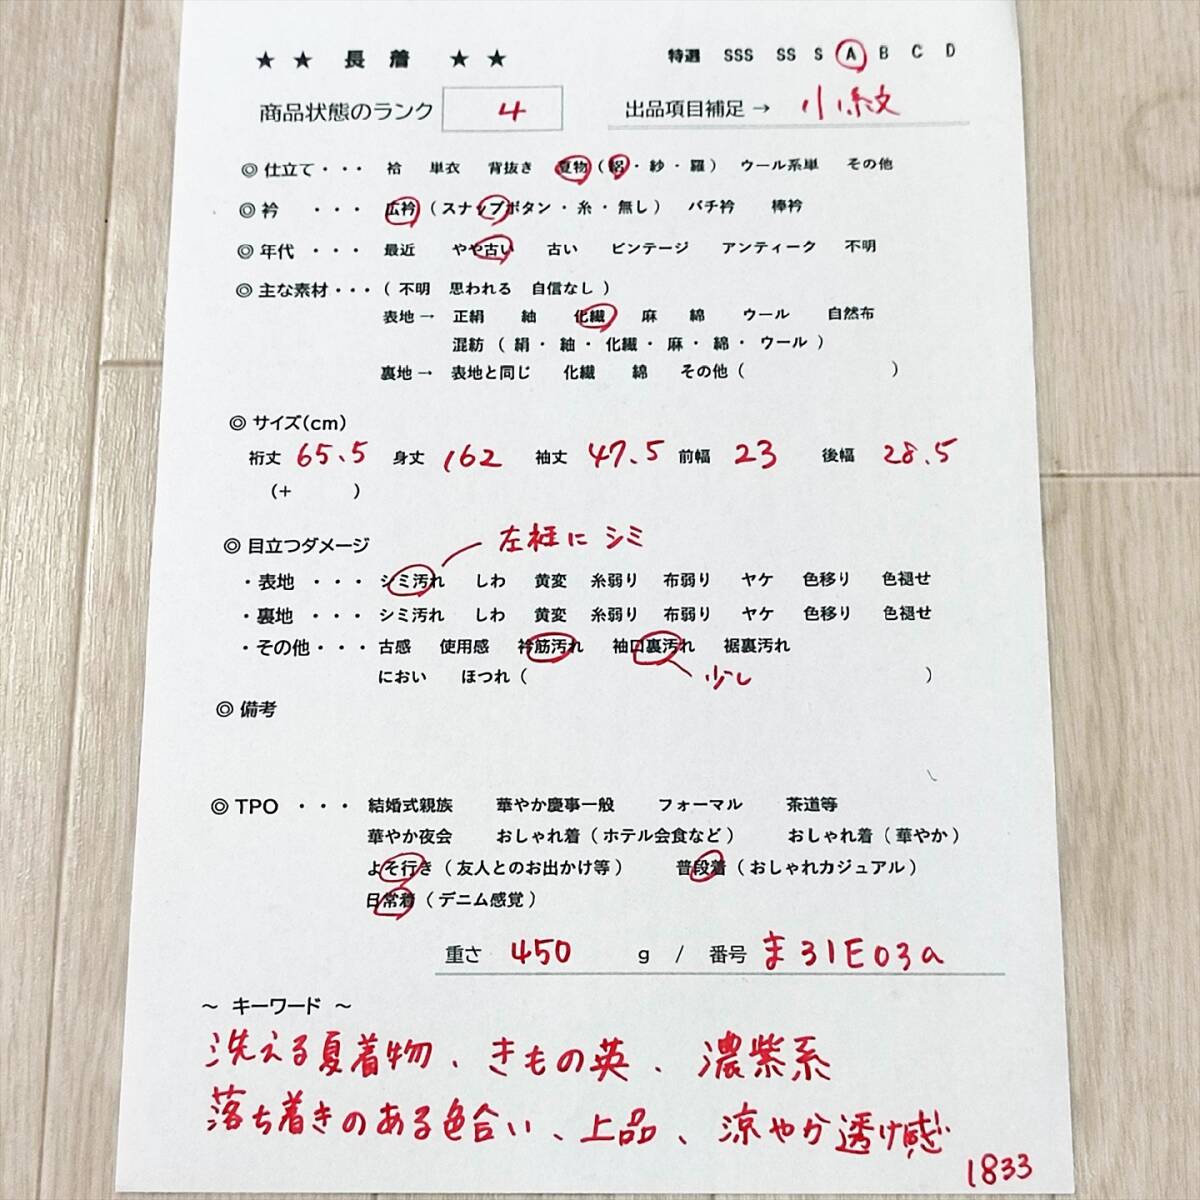 ★ ★ 長 着 ★ ★ 特選 SSS SS S A B C D
商品状態のランク 4 出品項目補足 → 小紋
◎ 仕立て・・・ 袷 単衣 背抜き 夏物（絽・紗・羅） ウール系単 その他
◎ 衿 ・・・ 広衿（スナップボタン・糸・無し） バチ衿 棒衿
◎ 年代 ・・・ 最近 やや古い 古い ビンテージ アンティーク 不明
◎ 主な素材・・・（不明 思われる 自信なし）
表地→ 正絹 紬 化繊 麻 綿 ウール 自然布
混紡（絹・紬・化繊・麻・綿・ウール）
裏地→ 表地と同じ 化繊 綿 その他（ ）
◎ サイズ(cm)
裄丈 65.5 身丈 162 袖丈 47.5 前幅 23 後幅 28.5
（+ ）
◎ 目立つダメージ 左衽に シミ
・表地 ・・・ シミ汚れ しわ 黄変 糸弱り 布弱り ヤケ 色移り 色褪せ
・裏地 ・・・ シミ汚れ しわ 黄変 糸弱り 布弱り ヤケ 色移り 色褪せ
・その他・・・ 古感 使用感 衿筋汚れ 袖口裏汚れ 裾裏汚れ
におい ほつれ（ ） 少し
◎ 備考
◎ TPO ・・・ 結婚式親族 華やか慶事一般 フォーマル 茶道等
華やか夜会 おしゃれ着（ホテル会食など） おしゃれ着（華やか）
よそ行き（友人とのお出かけ等） 普段着（おしゃれカジュアル）
日常着（デニム感覚）
重さ 450 g / 番号 ま31E03a
～ キーワード ～
洗える夏着物、きもの英、濃紫系
落ち着きのある色合い、上品、涼やか透け感
1833